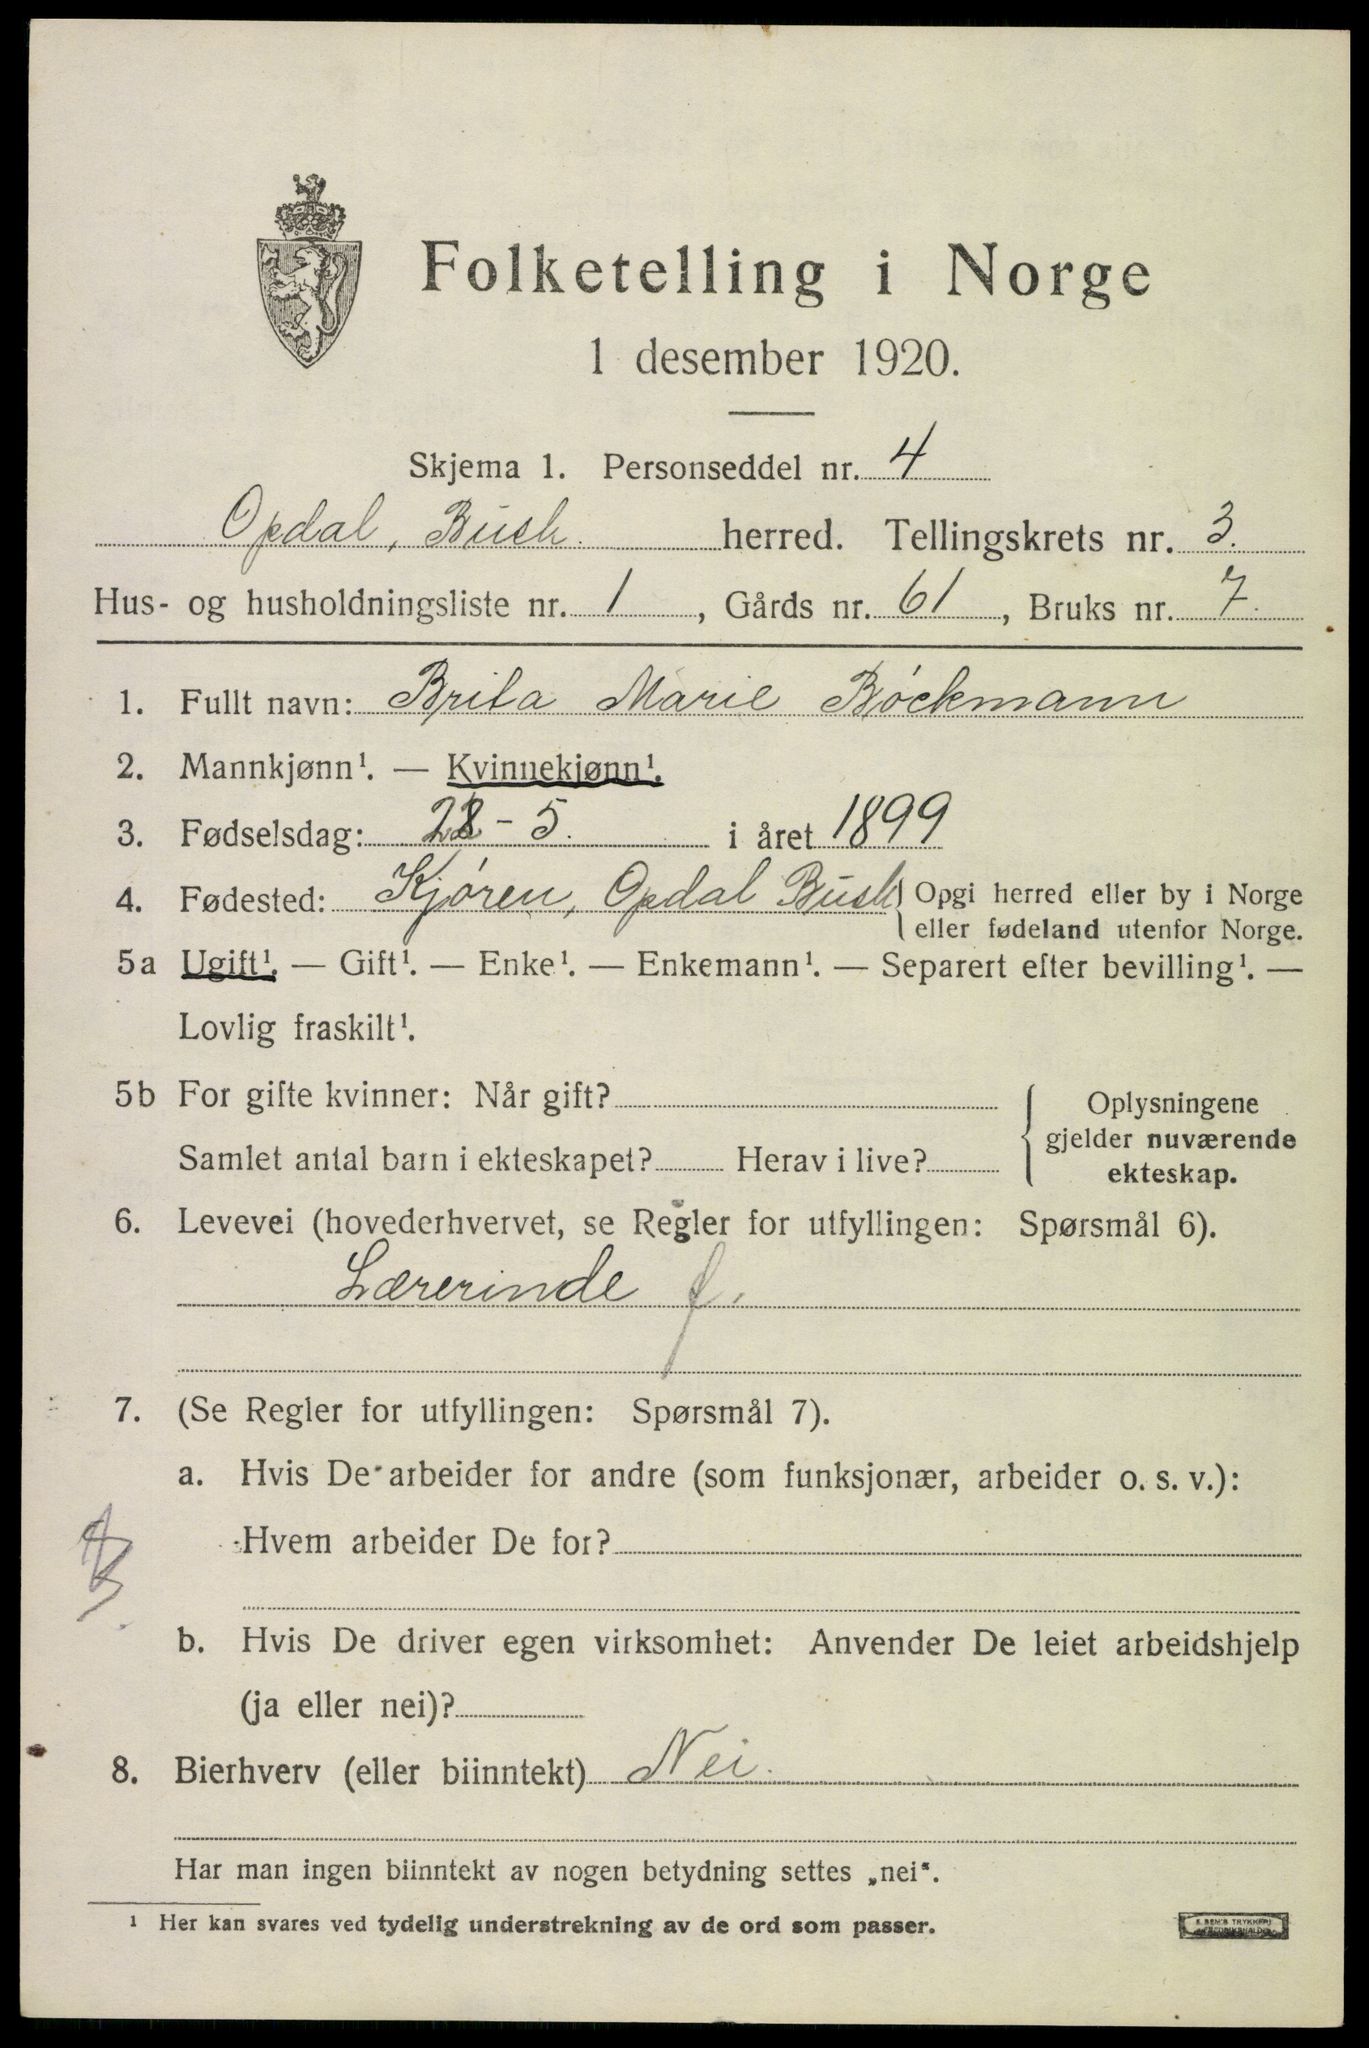 Folketelling i Norge
1 desember 1920.
Skjema 1. Personseddel nr. 4
Opdal, Busk. herred. Tellingskrets nr. 3.
Hus- og husholdningsliste nr. 1, Gårds nr. 61, Bruks nr. 7.
1. Fullt navn: Brita Marie Böckmann
2. Mannkjønn¹. — Kvinnekjønn¹.
3. Fødselsdag: - 5. i året 1899
4. Fødested: Kjøren, Opdal Busk { Opgi herred eller by i Norge
eller fødeland utenfor Norge.
5a Ugift¹. — Gift¹. — Enke¹. — Enkemann¹. — Separert efter bevilling¹. —
Lovlig fraskilt¹.
5b For gifte kvinner: Når gift?
Samlet antal barn i ekteskapet? Herav i live?
Oplysningene
gjelder nuværende
ekteskap.
6. Levevei (hovederhvervet, se Regler for utfyllingen: Spørsmål 6).
Lærerinde f.
7. (Se Regler for utfyllingen: Spørsmål 7).
a. Hvis De arbeider for andre (som funksjonær, arbeider o. s. v.):
Hvem arbeider De for?
b. Hvis De driver egen virksomhet: Anvender De leiet arbeidshjelp
(ja eller nei)?
8. Bierhverv (eller biinntekt) Nei.
Har man ingen biinntekt av nogen betydning settes „nei“.
¹ Her kan svares ved tydelig understrekning av de ord som passer.